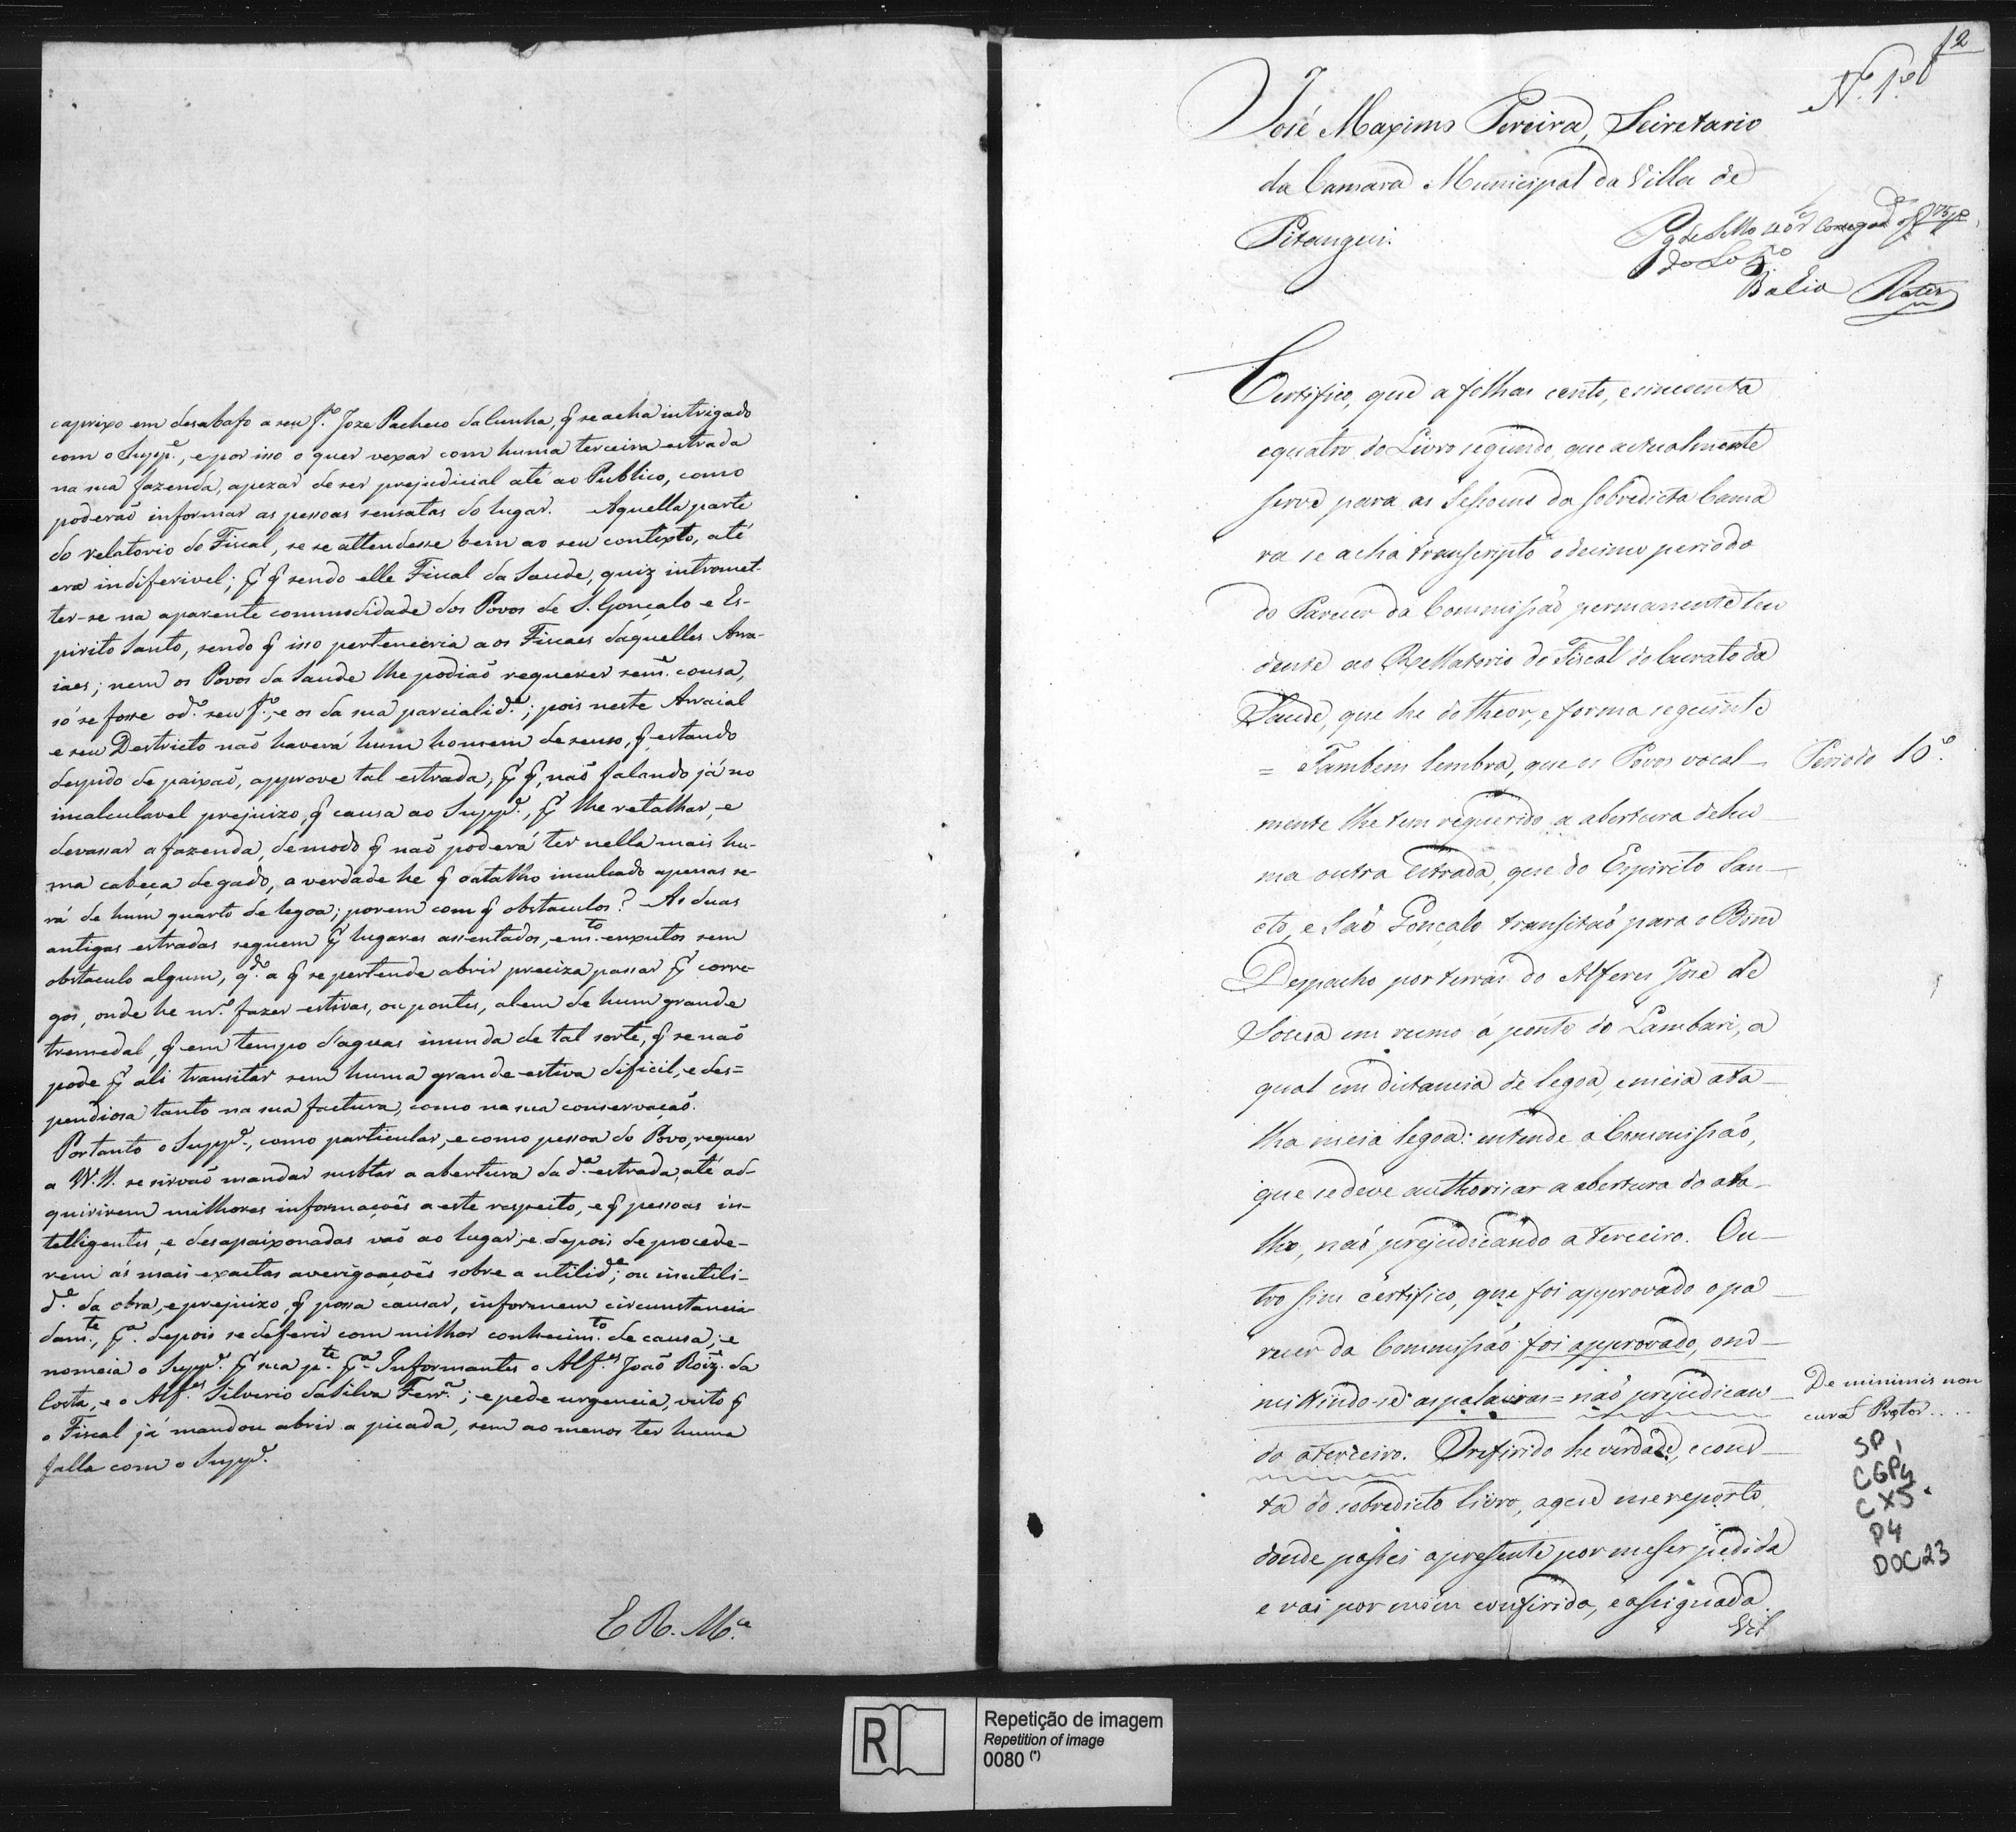 caprixo em desabafo a seu f.º Joze Pacheco da Cunha, q̃ se acha intrigado
com o Supp.e, e por isso o quer vexar com huma terceira estrada
na sua fazenda, apezar de ser prejudicial até ao Publico, como
poderaõ informar as pessoas sensatas do lugar. Aquella parte
do relatorio do Fiscal, se se attendesse bem ao seu contexto, até
era indiferivel; p̃ q̃ sendo elle Fiscal da Saude, quiz intromet-
ter-se na aparente commodidade dos Povos de S. Gonçalo e Es-
pirito Santo, sendo q̃ isso pertenceria aos Fiscaes daquelles Arra-
iaes; nem os Povos da Saude lhe podiaõ requerer sem.e cousa,
só se fosse o d.º seu f.º, e os da sua parcialid.e; pois neste Arraial
e seu Destricto naõ haverá hum homem de senso, q̃ estando
despido de paixaõ, approve tal estrada; p̃ q̃, naõ falando já no
incalculavel prejuizo, q̃ causa ao Supp.e, p̃ lhe retalhar, e
devassar a fazenda, de modo q̃ naõ poderá ter nella mais hu-
ma cabeça de gado, a verdade he q̃ o atalho inculcado apenas se-
rá de hum quarto de legoa; porem com q̃ obstaculos? As duas
antigas estradas seguem p̃ lugares assentados, e m.to enxutos sem
obstaculo algum, q.do a q̃ se pertende abrir preciza passar p̃ corre-
gos, onde he nr.º fazer estivas, ou pontes, alem de hum grande
tremedal, q̃ em tempo d'aguas inunda de tal sorte, q̃ se naõ
pode p̃ ali transitar sem huma grande estiva dificil, e des=
pendiosa tanto na sua factura, como na sua conservaçaõ.
Portanto o Supp.e, como particular, e como pessoa do Povo, requer
a V.V. se sirvaõ mandar sustar a abertura da d.a estrada, até ad-
quirirem milhores informaçoẽs a este respeito, e q̃ pessoas in-
telligentes, e desapaixonadas vaõ ao lugar, e depois de procede-
rem ás mais exactas averigoaçoẽs sobre a utilid.e, ou inutili-
d.e da obra, e prejuizo, q̃ possa causar, informem circumstancia-
dam.te, p.a depois se deferir com milhor conhecim.to de causa; e
nomeia o Supp.e p̃ sua p.te p.a Informantes o Alf.es Joaõ Roiz. da
Costa, e o Alf.es Silverio da Silva Ferr.a; e pede urgencia, visto q̃
o Fiscal já mandou abrir a picada, sem ao menos ter huma
falla com o Supp.e
E. R. M.ce
12
N.º 1.º
José Maximo Pereira, Secretario
da Camara Municipal da Villa de
Pitangui.
Certifico, que a folhas cento, e sincoenta
e quatro do Livro segundo, que actualmente
serve para as Sessoens da sobredicta Cama
ra se acha transcripto o decimo periodo
do Parecer da Commissaõ permanente ten
dente ao Rellatorio do Fiscal do Curato da
Saude, que he do theor, e forma seguinte
= Tambem lembra, que os Povos vocal-
Periodo 10º.
mente lhe tem requerido a abertura de hu-
ma outra estrada, que do Espirito San-
cto, e Saõ Gonçalo transitaõ para o Bom
Despacho por terras do Alferes Jose de
Sousa em rumo á ponte do Lambari, a
qual em distancia de legoa, e meia ata-
lha meia legoa: entende a Commissaõ,
que se deve authorisar a abertura do ata-
lho, naõ prejudicando a terceiro. Ou-
tro sim certifico, que foi approvado o pa-
recer da Commissaõ foi approvado, ono-
mittindo-se as palavras = naõ prejudican-
do a terceiro. O referido he verdade, e cons-
ta do sobredicto livro, a que me reporto,
donde passei a presente por me ser pedida
e vai por mim conferida, e assignada.
Vil
De minimis non
curat Prætor....
SP1
CGP4
CX5.
P4
DOC23
R
Repetição de imagem
Repetition of image
0080 (*)